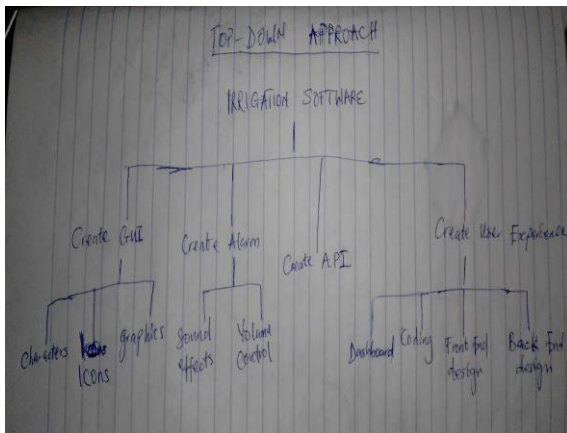 TOP-DOWN APPROACH
IRRIGATION SOFTWARE
Create GUI
Create Alarm
Create API
Create User Experience
Characters
Icons
graphics
Sound
effects
Volume
Control
Dashboard
Coding
Front End
design
Back End
design